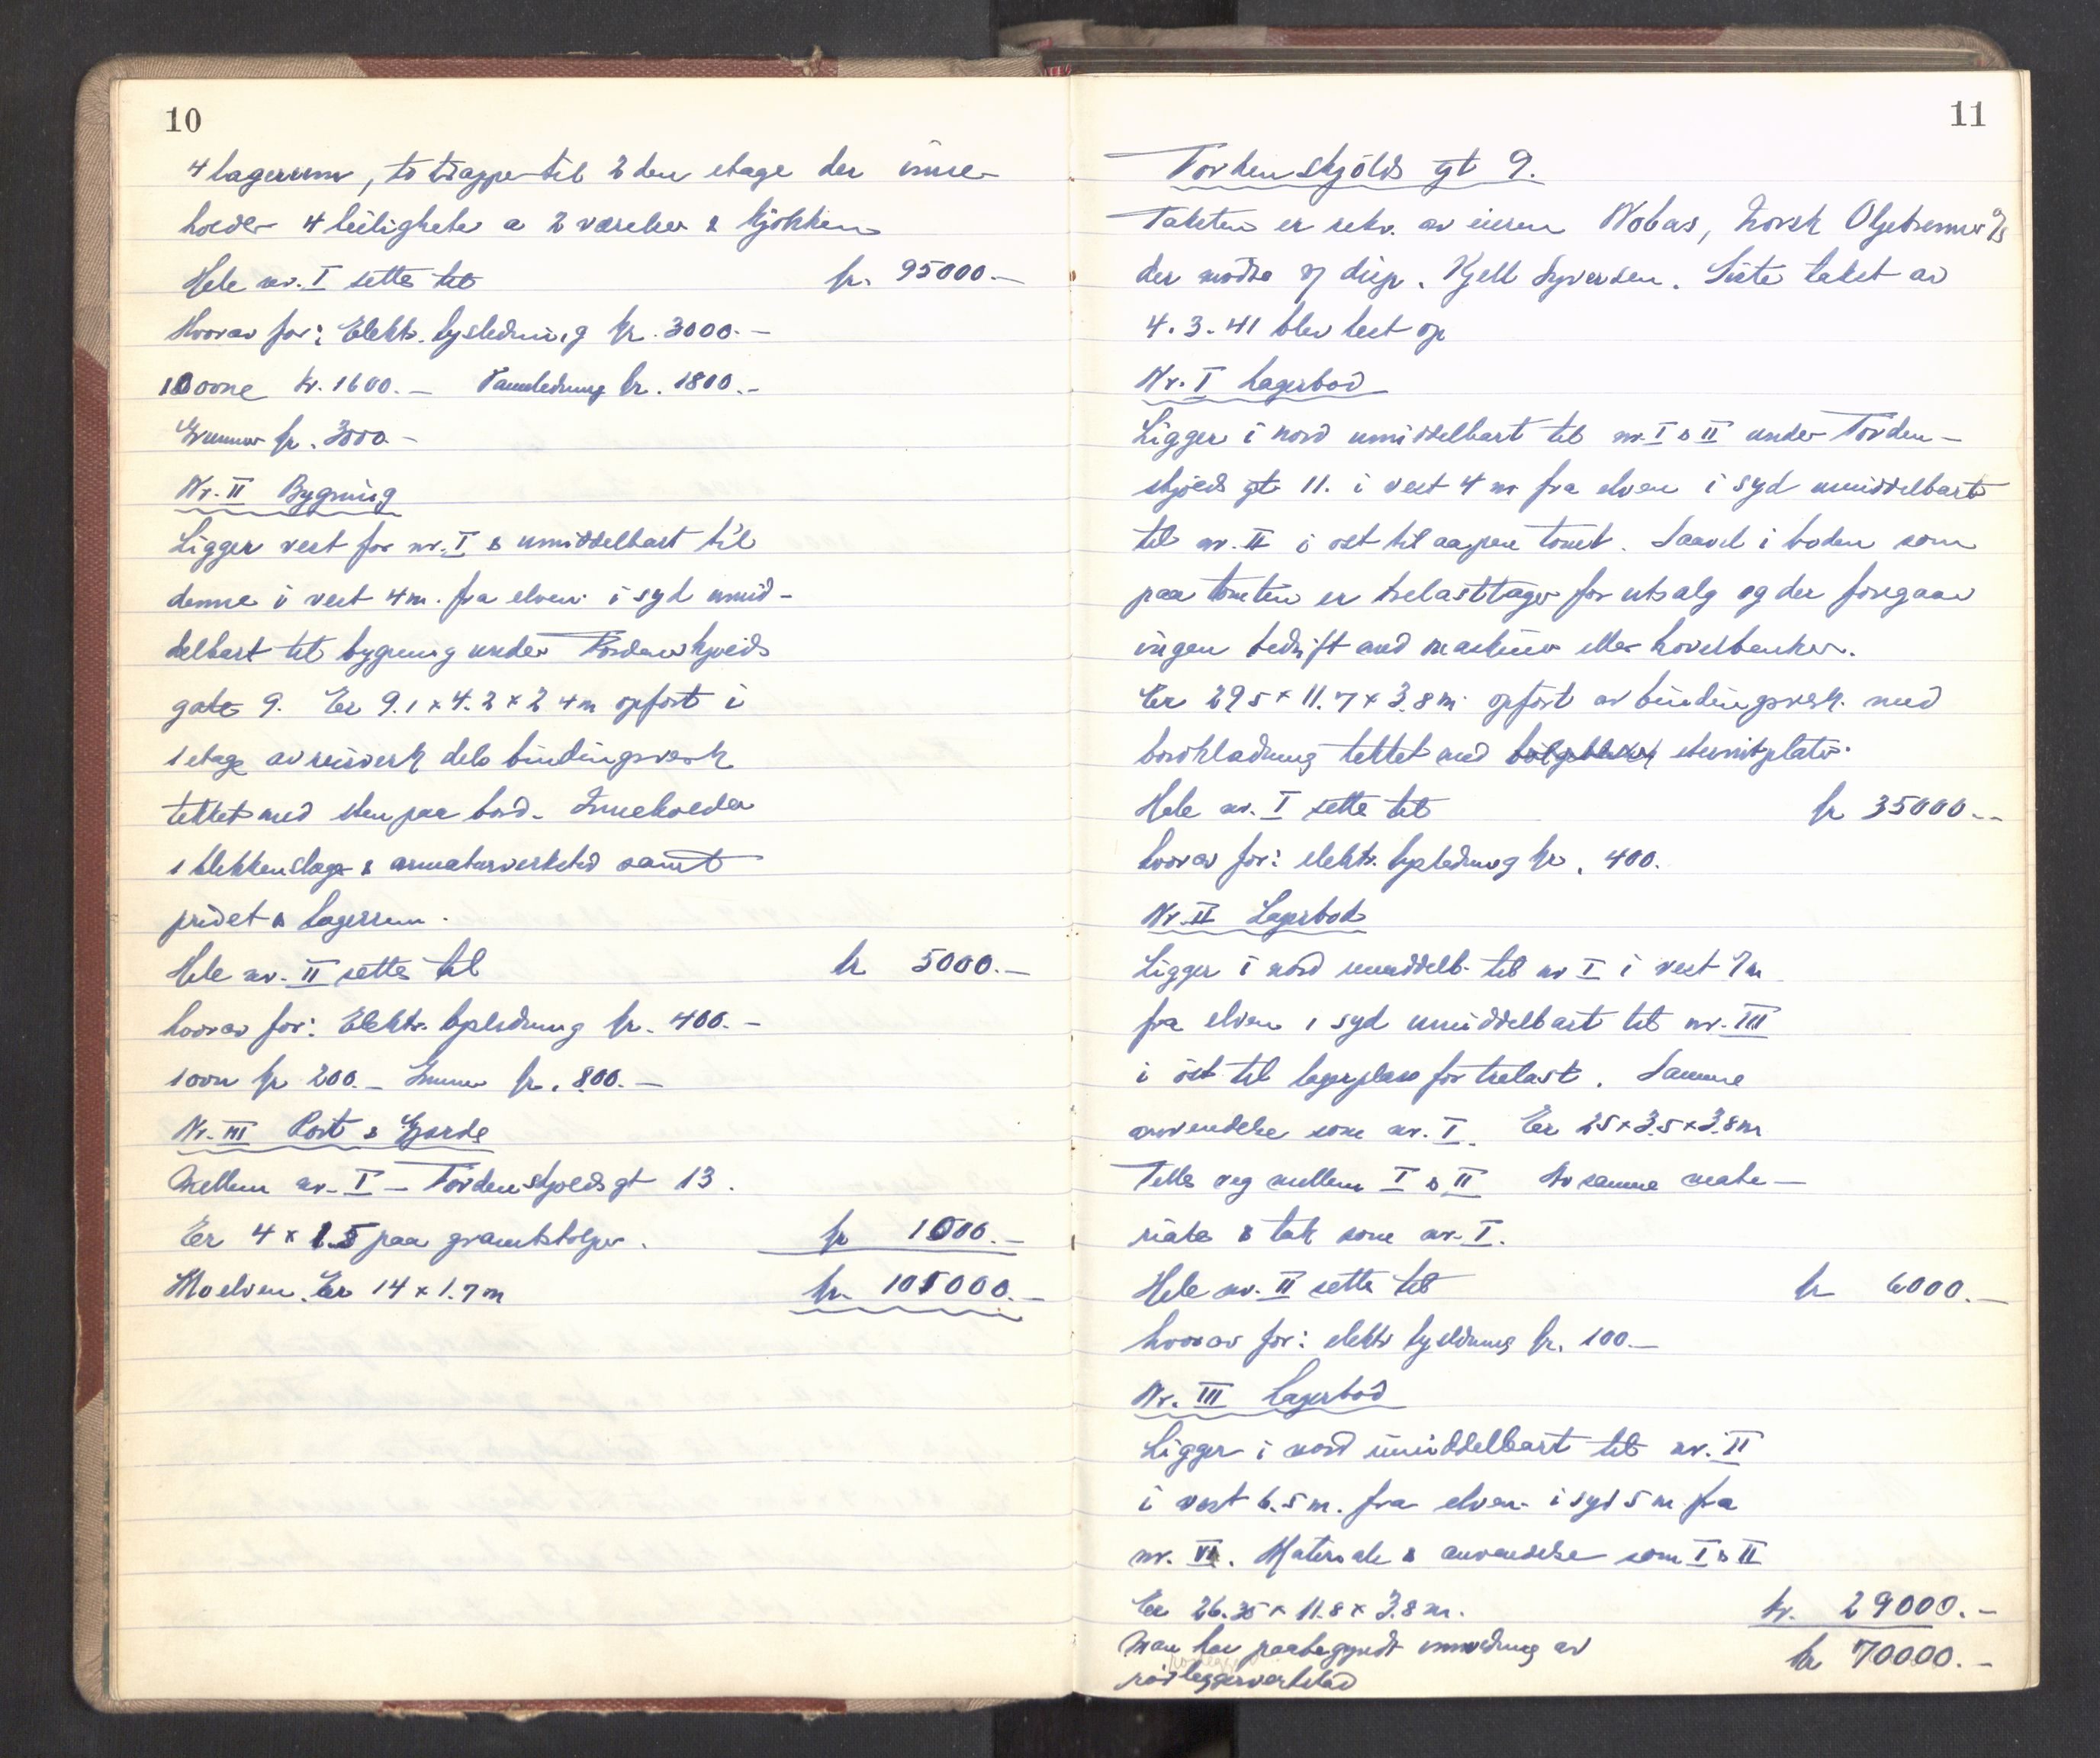 10
4 lagerrum, to trapper til 2den etage der inne-
holder 4 leiligheter a 2 værelser & kjøkken
Hele nr. I settes til kr. 95000.-
Hvorav for: Elektr. lysledning kr. 3000.-
10 ovne kr. 1600.- Vannledning kr. 1800.-
Grunmur kr. 3000.-
Nr. II Bygning
Ligger vest for nr. I & umiddelbart til
denne i vest 4 m. fra elven i syd umid-
delbart til bygning under Tordenskjolds
gate 9. Er 9.1 x 4.2 x 2 4 m opført i
1 etage av reisverk dels bindingsverk
tekket med sten paa bord. Inneholder
1 blikkenslager & armaturverksted samt
privet & lagerrum.
Hele nr. II settes til kr 5000.-
hvorav for: Elektr. lysledning kr. 400.-
1 ovn kr 200.- Grunmur kr. 800.-
Nr. III Port & Gjærde
Mellem nr. I - Tordenskjolds gt 13.
Er 4 x 1.5 paa granitstolper. kr 1000.-
Mo elven. Er 14 x 1.7 m kr. 101000.-
11
Tordenskjolds gt 9.
Taksten er rekv. av eieren Nobas, Norsk Oljebrenner A/S
der møtte v/ disp. Kjell Syversen. Siste takst av
4.3.41 blev lest op
Nr. I Lagerbod
Ligger i nord umiddelbart til nr. I & II under Torden-
skjolds gt 11. i vest 4 m fra elven i syd umiddelbart
til nr. II i øst til aapen tomt. Saavel i boden som
paa tomten er trelastlager for utsalg og der foregaar
ingen bedrift med maskiner eller høvelbenker.
Er 29 5 x 11.7 x 3.8 m opført av bindingsverk med
bordkledning tekket med bølgeblikk eternitplater.
Hele nr. I settes til kr 35000.-
hvorav for: elektr. lysledning kr. 400.
Nr. II Lagerbod
Ligger i nord umiddelb. til nr I i vest 7 m
fra elven i syd umiddelbart til nr. III
i øst til lagerplass for trelast. Samme
anvendelse som nr. I. Er 25 x 3.5 x 3.8 m
Felles veg mellem I & II Av samme mate-
riale & tak som nr. I.
Hele nr. II settes til kr 6000.-
hvorav for: elektr lysledning kr. 100.-
Nr. III Lagerbod
Ligger i nord umiddelbart til nr. II
i vest 6.5 m. fra elven i syd 5 m fra
nr. VI. Materiale & anvendelse som I & II
Er 26.35 x 11.8 x 3.8 m. kr. 29000.-
Man har paabegyndt innredning av kr 70000.-
rørleggerverksted